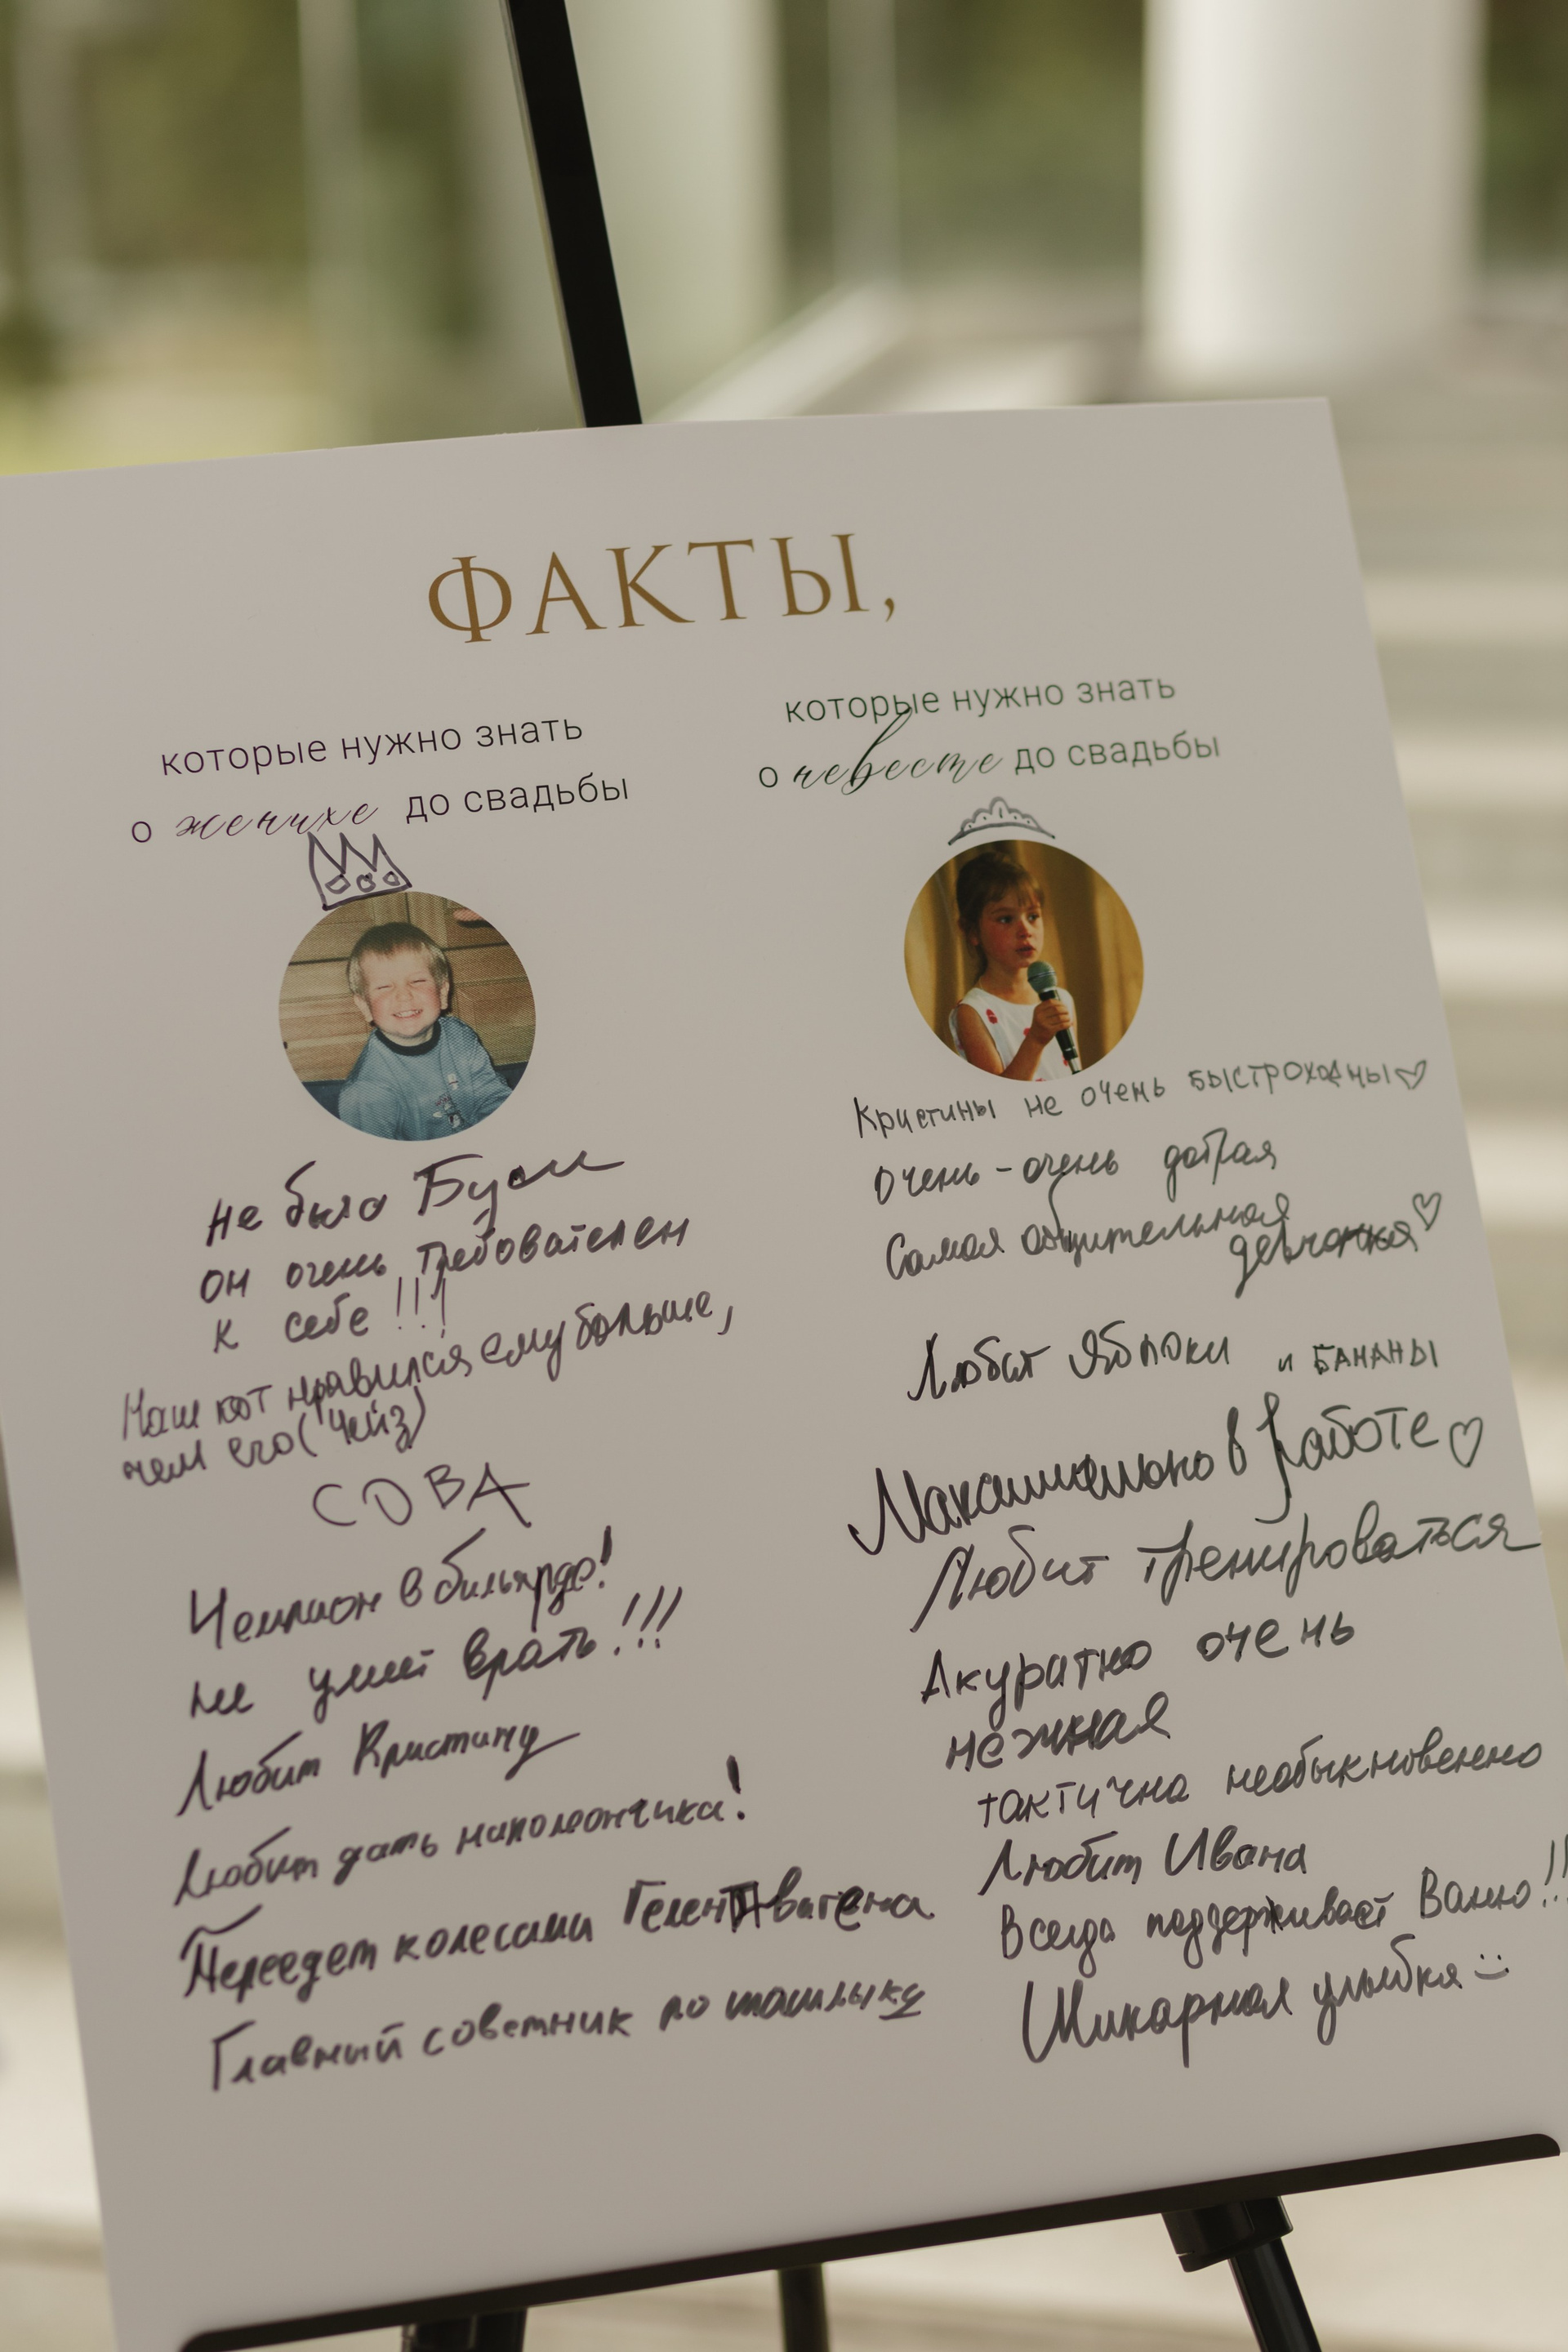 ФАКТЫ,
которые нужно знать
о женихе до свадьбы
не было
он очень требователен
к себе!!!
Наш кот нравился ему больше,
чем его (Чейз)
СОВА
Чемпион в бильярде!
не умеет врать!!!
Любит Кристину
Любит дать наполеончика!
Переедет колесами
Главный советник по шашлыку
которые нужно знать
о невесте до свадьбы
Кристины не очень БЫСТРОХОДНЫ♡
Очень-очень добрая
Самая общительная
девчонка♡
Любит Яблоки и БАНАНЫ
Максимально в работе♡
Любит тренироваться
Акуратно очень
нежная
тактична необыкновенно
Любит Ивана
Всегда поддерживает Ваню!!
Шикарная улыбка :)